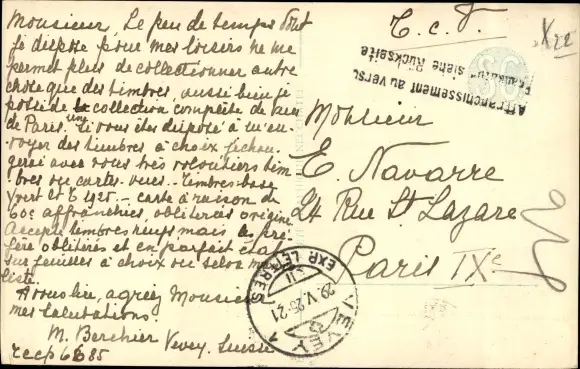 Monsieur, Le peu de temps dont
je dispose pour mes loisirs ne me
permet plus de collectionner autre
chose que des timbres, aussi bien je
possède la collection complète de
de Paris. une Si vous êtes disposé à m'en-
voyer des timbres à choix j'échan-
gerai avec vous très volontiers tim-
bres ou cartes-vues. - Timbres base
Yvert et T 1925. - carte à raison de
60c affranchies, oblitérées origine
Accepte timbres neufs mais je pré-
fère oblitérés et en parfait état
sur feuilles à choix ou selon
liste.
A vous lire, agréez Monsieur
mes salutations.
M. Berchier Vevey. Suisse
T.c.f.
X22
Affranchissement au verso
Frankatur siehe Rückseite
Monsieur
E. Navarre
24 Rue St Lazare
Paris IXe
VEVEY
EXP. LETTRES
29.V.25-21